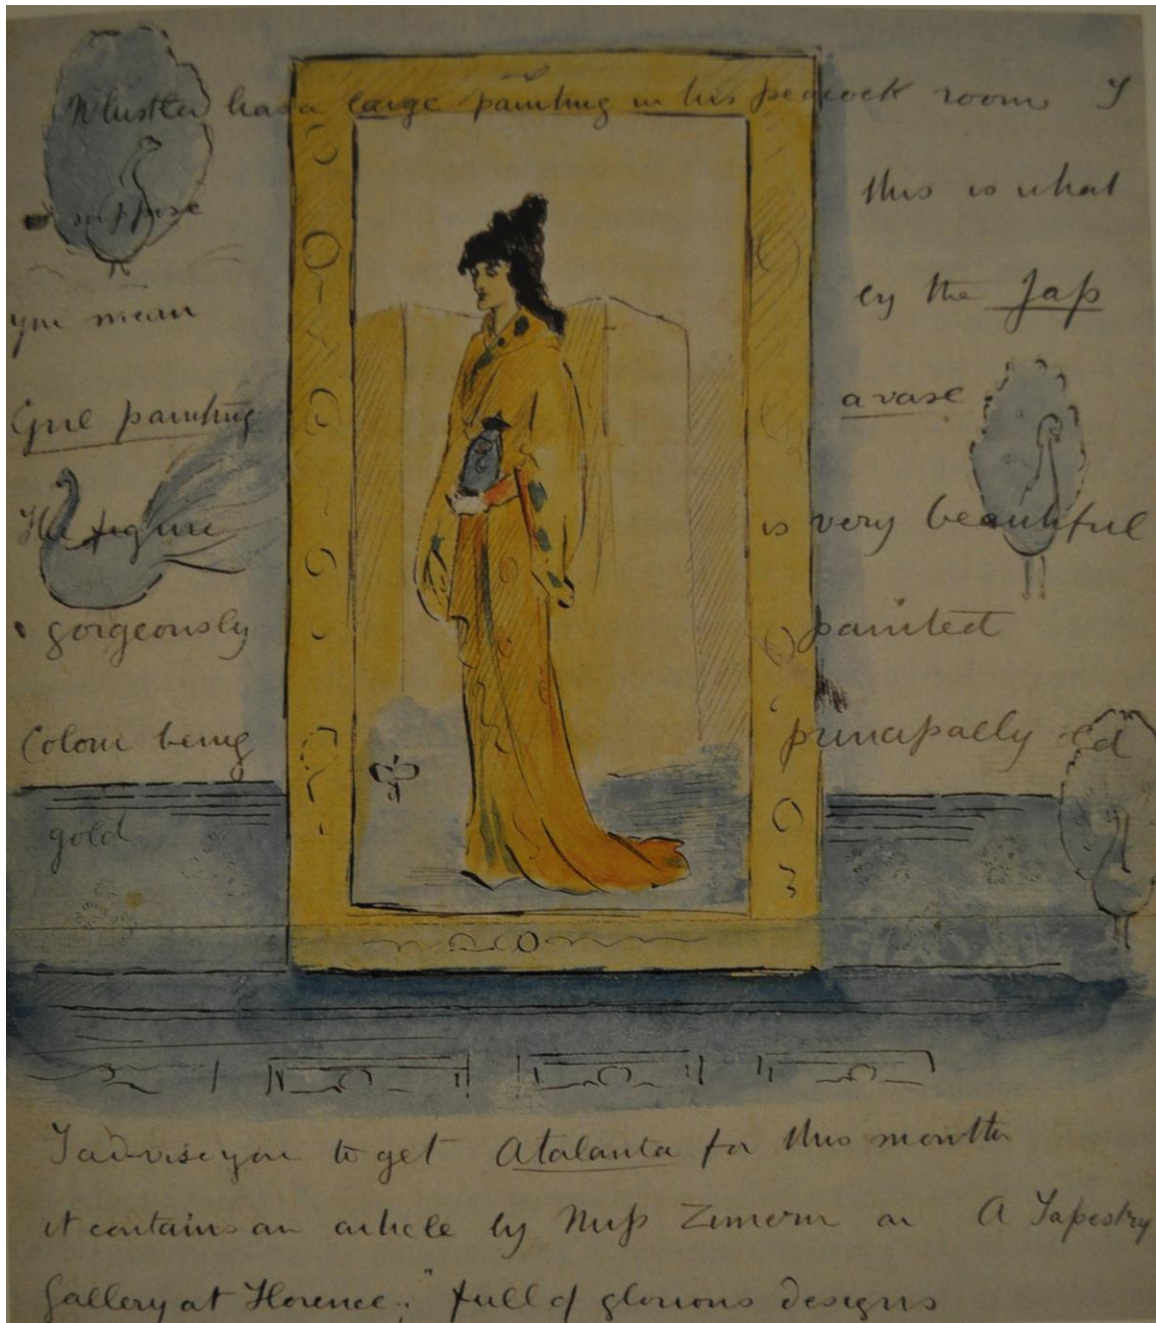 Whistler has a large painting in his peacock room I
suppose this is what
you mean by the Jap
Girl painting a vase
The figure is very beautiful
gorgeously painted
Colour being principally old
gold
I advise you to get Atalanta for this month
it contains an article by Miss Zimern on A Tapestry
Gallery at Florence." full of glorious designs